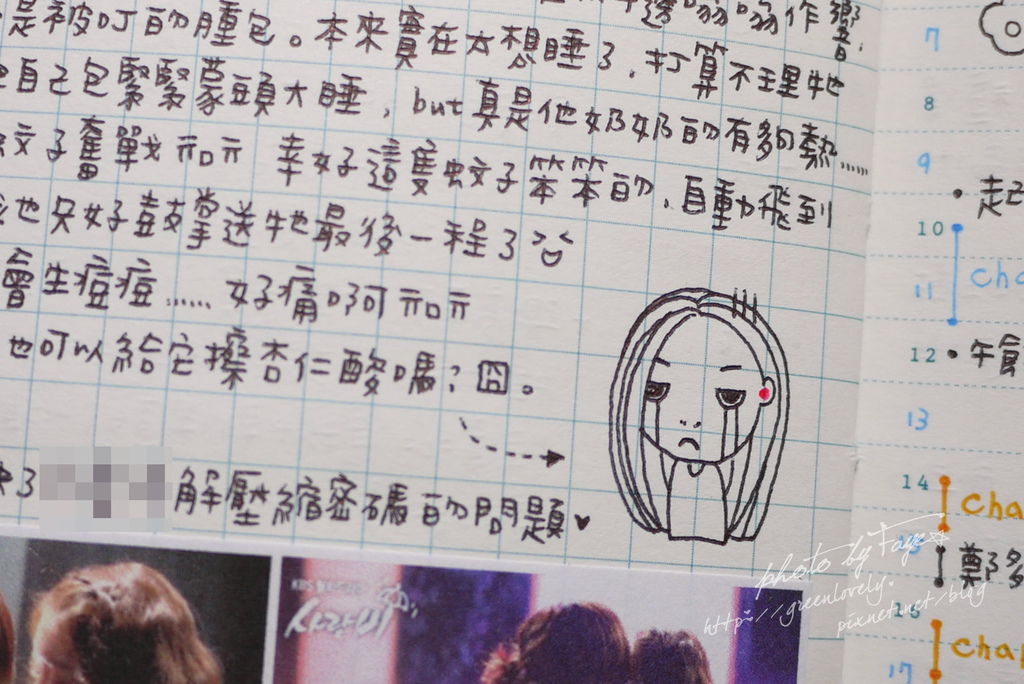 嗡嗡作響.
是被叮的腫包。本來實在太想睡了,打算不理牠
自己包緊緊蒙頭大睡,but真是他奶奶的有夠熱……
蚊子奮戰 
幸好這隻蚊子笨笨的,自動飛到
也只好鼓掌送牠最後一程了
會生痘痘…… 好痛啊
也可以給它擦杏仁酸嗎?囧。
解壓縮密碼的問題♥
KBS
사랑비
7
8
9
• 起
10
11
Cha
12 • 午餐
13
14
Cha
鄭多
16
Cha
17
photo by Faye☆
http://greenlovely.
pixnet.net/blog